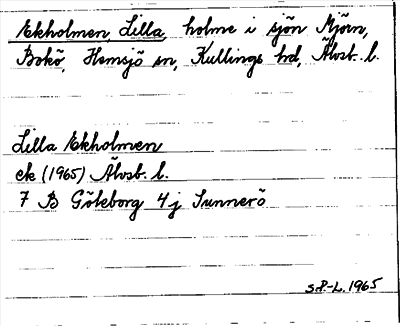 Ekholmen, Lilla, holme i sjön Mjörn,
Bokö, Hemsjö sn, Kullings hd, Älvsb. l.
Lilla Ekholmen
ek (1965) Älvsb. l.
7 B Göteborg 4 j Sunnerö
S.P.-L. 1965